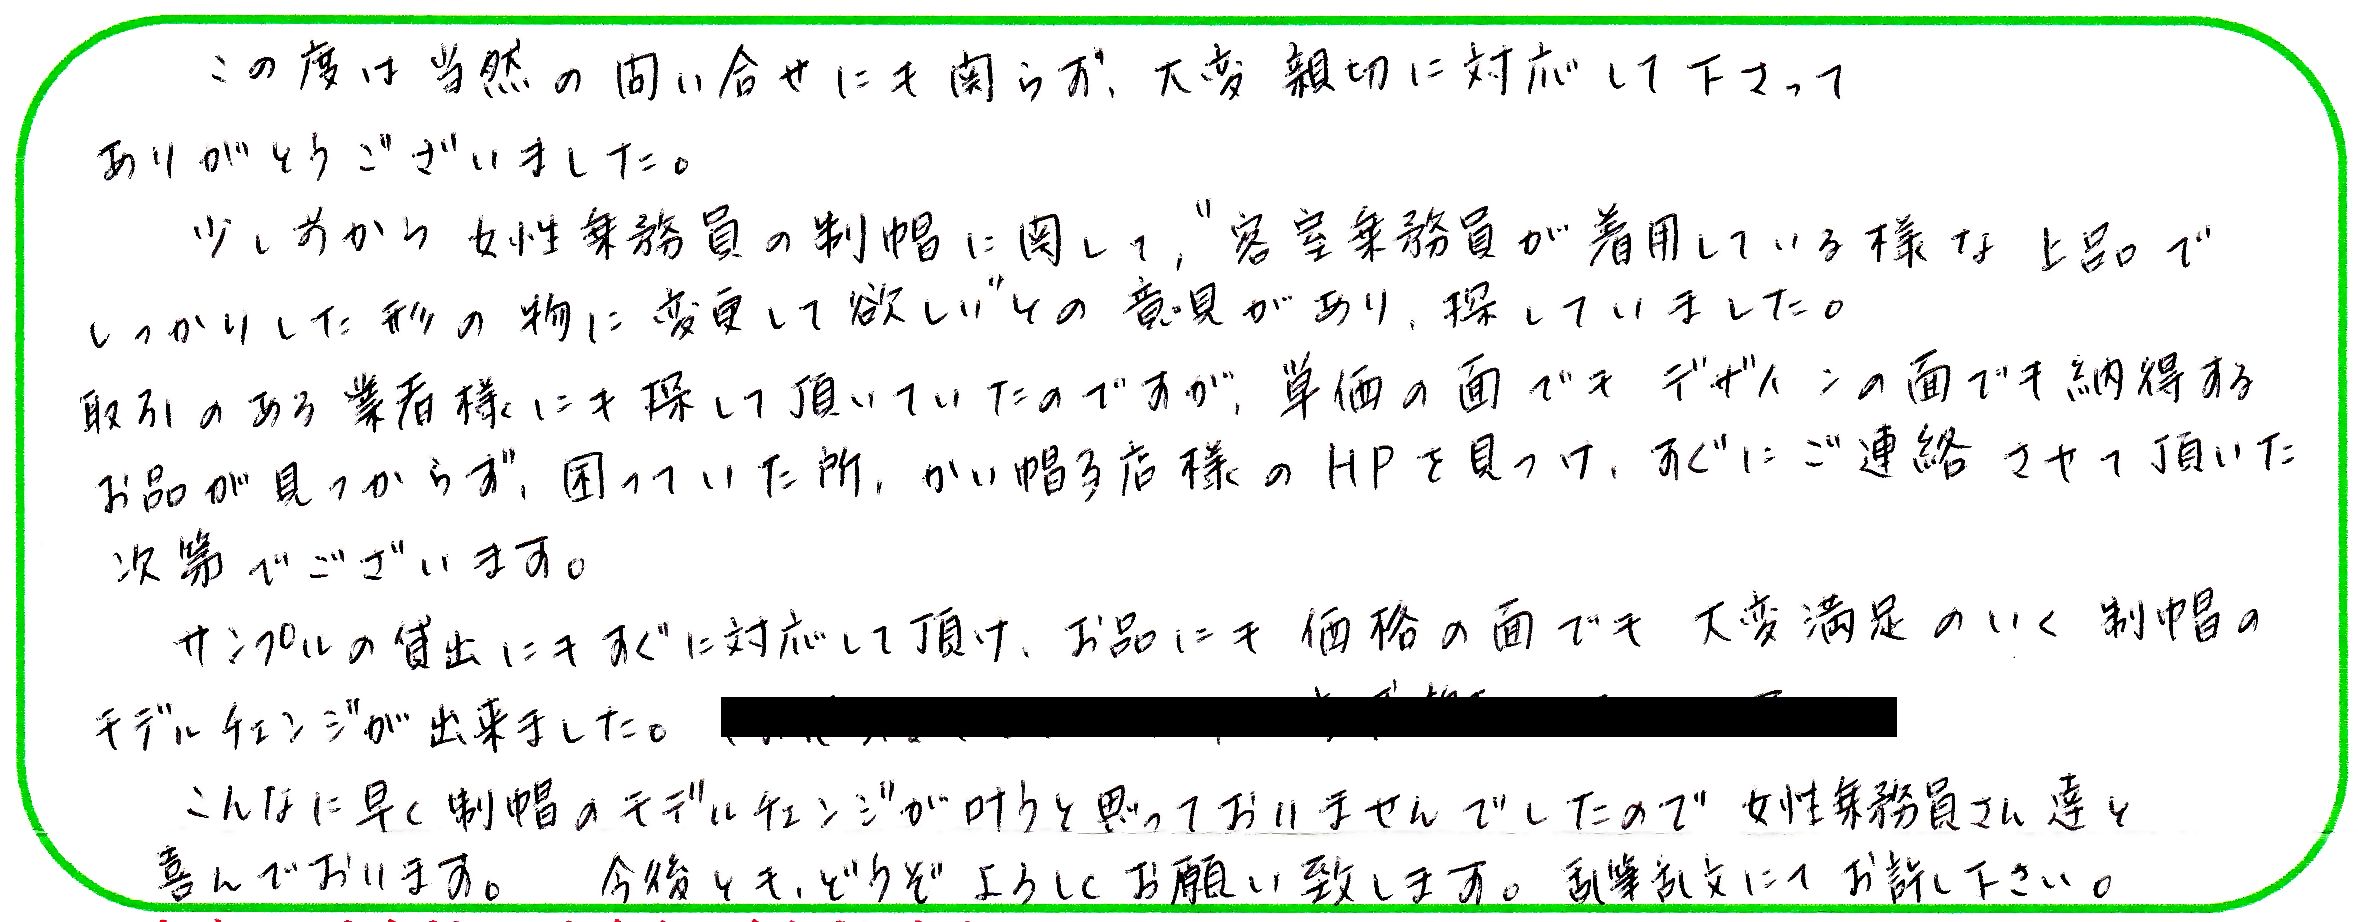 この度は当然の問い合せにも関らず、大変親切に対応して下さって
ありがとうございました。
少し前から女性乗務員の制帽に関して、"客室乗務員が着用している様な上品で
しっかりした形の物に変更して欲しい"との意見があり、探していました。
取引のある業者様にも探して頂いていたのですが、単価の面でもデザインの面でも納得する
お品が見つからず、困っていた所、かい帽子店様のHPを見つけ、すぐにご連絡させて頂いた
次第でございます。
サンプルの貸出にもすぐに対応して頂け、お品にも価格の面でも大変満足のいく制帽の
モデルチェンジが出来ました。
こんなに早く制帽のモデルチェンジが叶うと思っておりませんでしたので女性乗務員さん達と
喜んでおります。 今後とも、どうぞよろしくお願い致します。乱筆乱文にてお許し下さい。